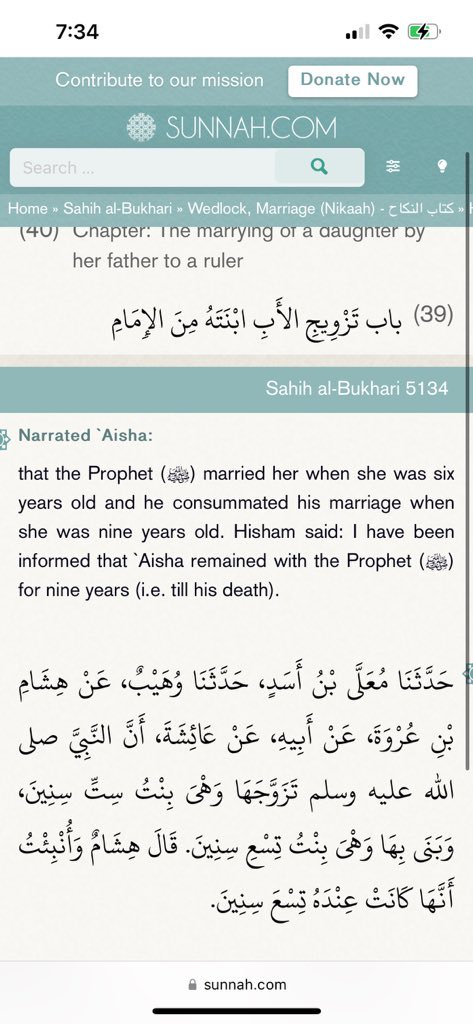 7:34
Contribute to our mission Donate Now
SUNNAH.COM
Search ...
Home » Sahih al-Bukhari » Wedlock, Marriage (Nikaah) - كتاب النكاح »
(40) Chapter: The marrying of a daughter by
her father to a ruler
(39) باب تَزْوِيجِ الأَبِ ابْنَتَهُ مِنَ الإِمَامِ
Sahih al-Bukhari 5134
Narrated `Aisha:
that the Prophet (ﷺ) married her when she was six
years old and he consummated his marriage when
she was nine years old. Hisham said: I have been
informed that `Aisha remained with the Prophet (ﷺ)
for nine years (i.e. till his death).
حَدَّثَنَا مُعَلَّى بْنُ أَسَدٍ، حَدَّثَنَا وُهَيْبٌ، عَنْ هِشَامِ
بْنِ عُرْوَةَ، عَنْ أَبِيهِ، عَنْ عَائِشَةَ، أَنَّ النَّبِيَّ صلى
الله عليه وسلم تَزَوَّجَهَا وَهْىَ بِنْتُ سِتِّ سِنِينَ،
وَبَنَى بِهَا وَهْىَ بِنْتُ تِسْعِ سِنِينَ. قَالَ هِشَامٌ وَأُنْبِئْتُ
أَنَّهَا كَانَتْ عِنْدَهُ تِسْعَ سِنِينَ.
sunnah.com